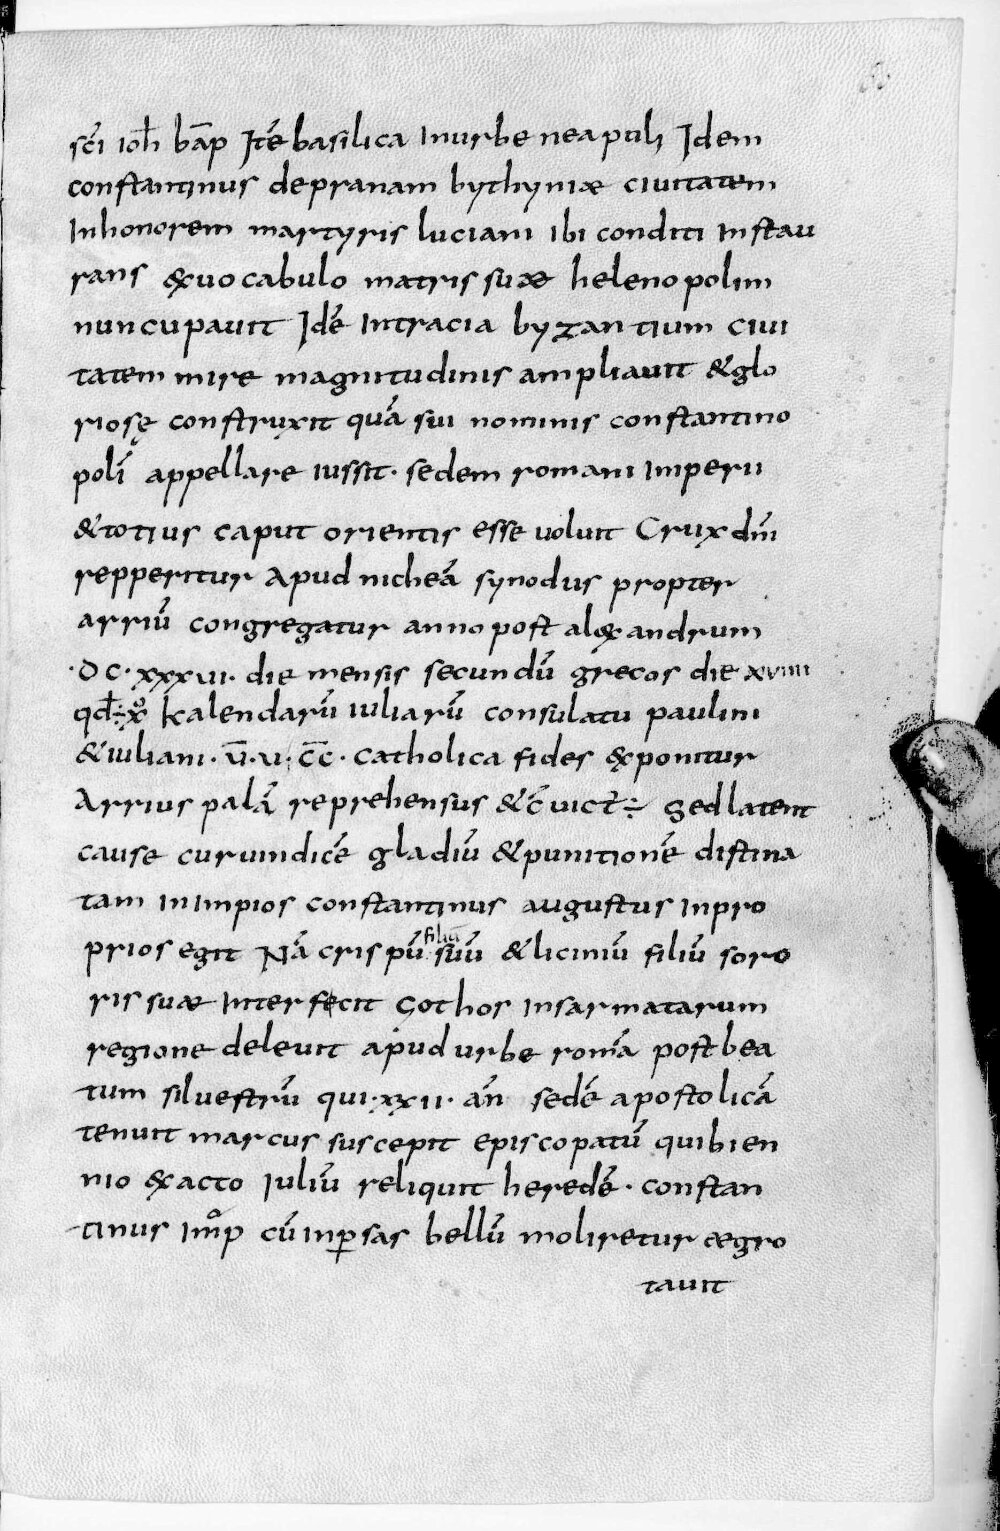 sc̄i ioħ bāp Itē basilica Inurbe neapoli Idem
constantinus depranam bythyniæ ciuitatem
Inhonorem martyris luciani Ibi conditi Instau
rans &xuocabulo matris suæ helenopolim
nuncupauit Idē Intracia byzantium ciui
tatem mire magnitudinis ampliauit &glo
riosę construxit quā sui nominis constantino
polī appellare iussit· sedem romani Imperii
&totius caput orientis esse uoluit Crux dn̄i
repperitur Apud nicheā synodus propter
arriū congregatur anno post al&xandrum
·DC·xxxvi· die mensis secundū grecos die xviiii
qđ÷xͦ kalendarū iuliarū consulatu paulini
&iuliani· v̄i·vi c̄c̄· catholica fides &xponitur
Arrius palā reprehensus &c̄uict÷ Sed latent
cause cur uindicē gladiū &punitionē distina
tam InImpios constantinus augustus Inpro
prios egit Nā crispū filiū suū &liciniū filiū soro
ris suæ Interfecit Gothos Insarmatarum
regione deleuit apud urbe romā post bea
tum siluestrū qui·xxii· an̄ sedē apostolicā
tenuit marcus suscepit episcopatū qui bien
nio &xacto Iuliū reliquit heredē· constan
tinus Im̄p cū Inꝑsas bellū moliretur ægro
tauit